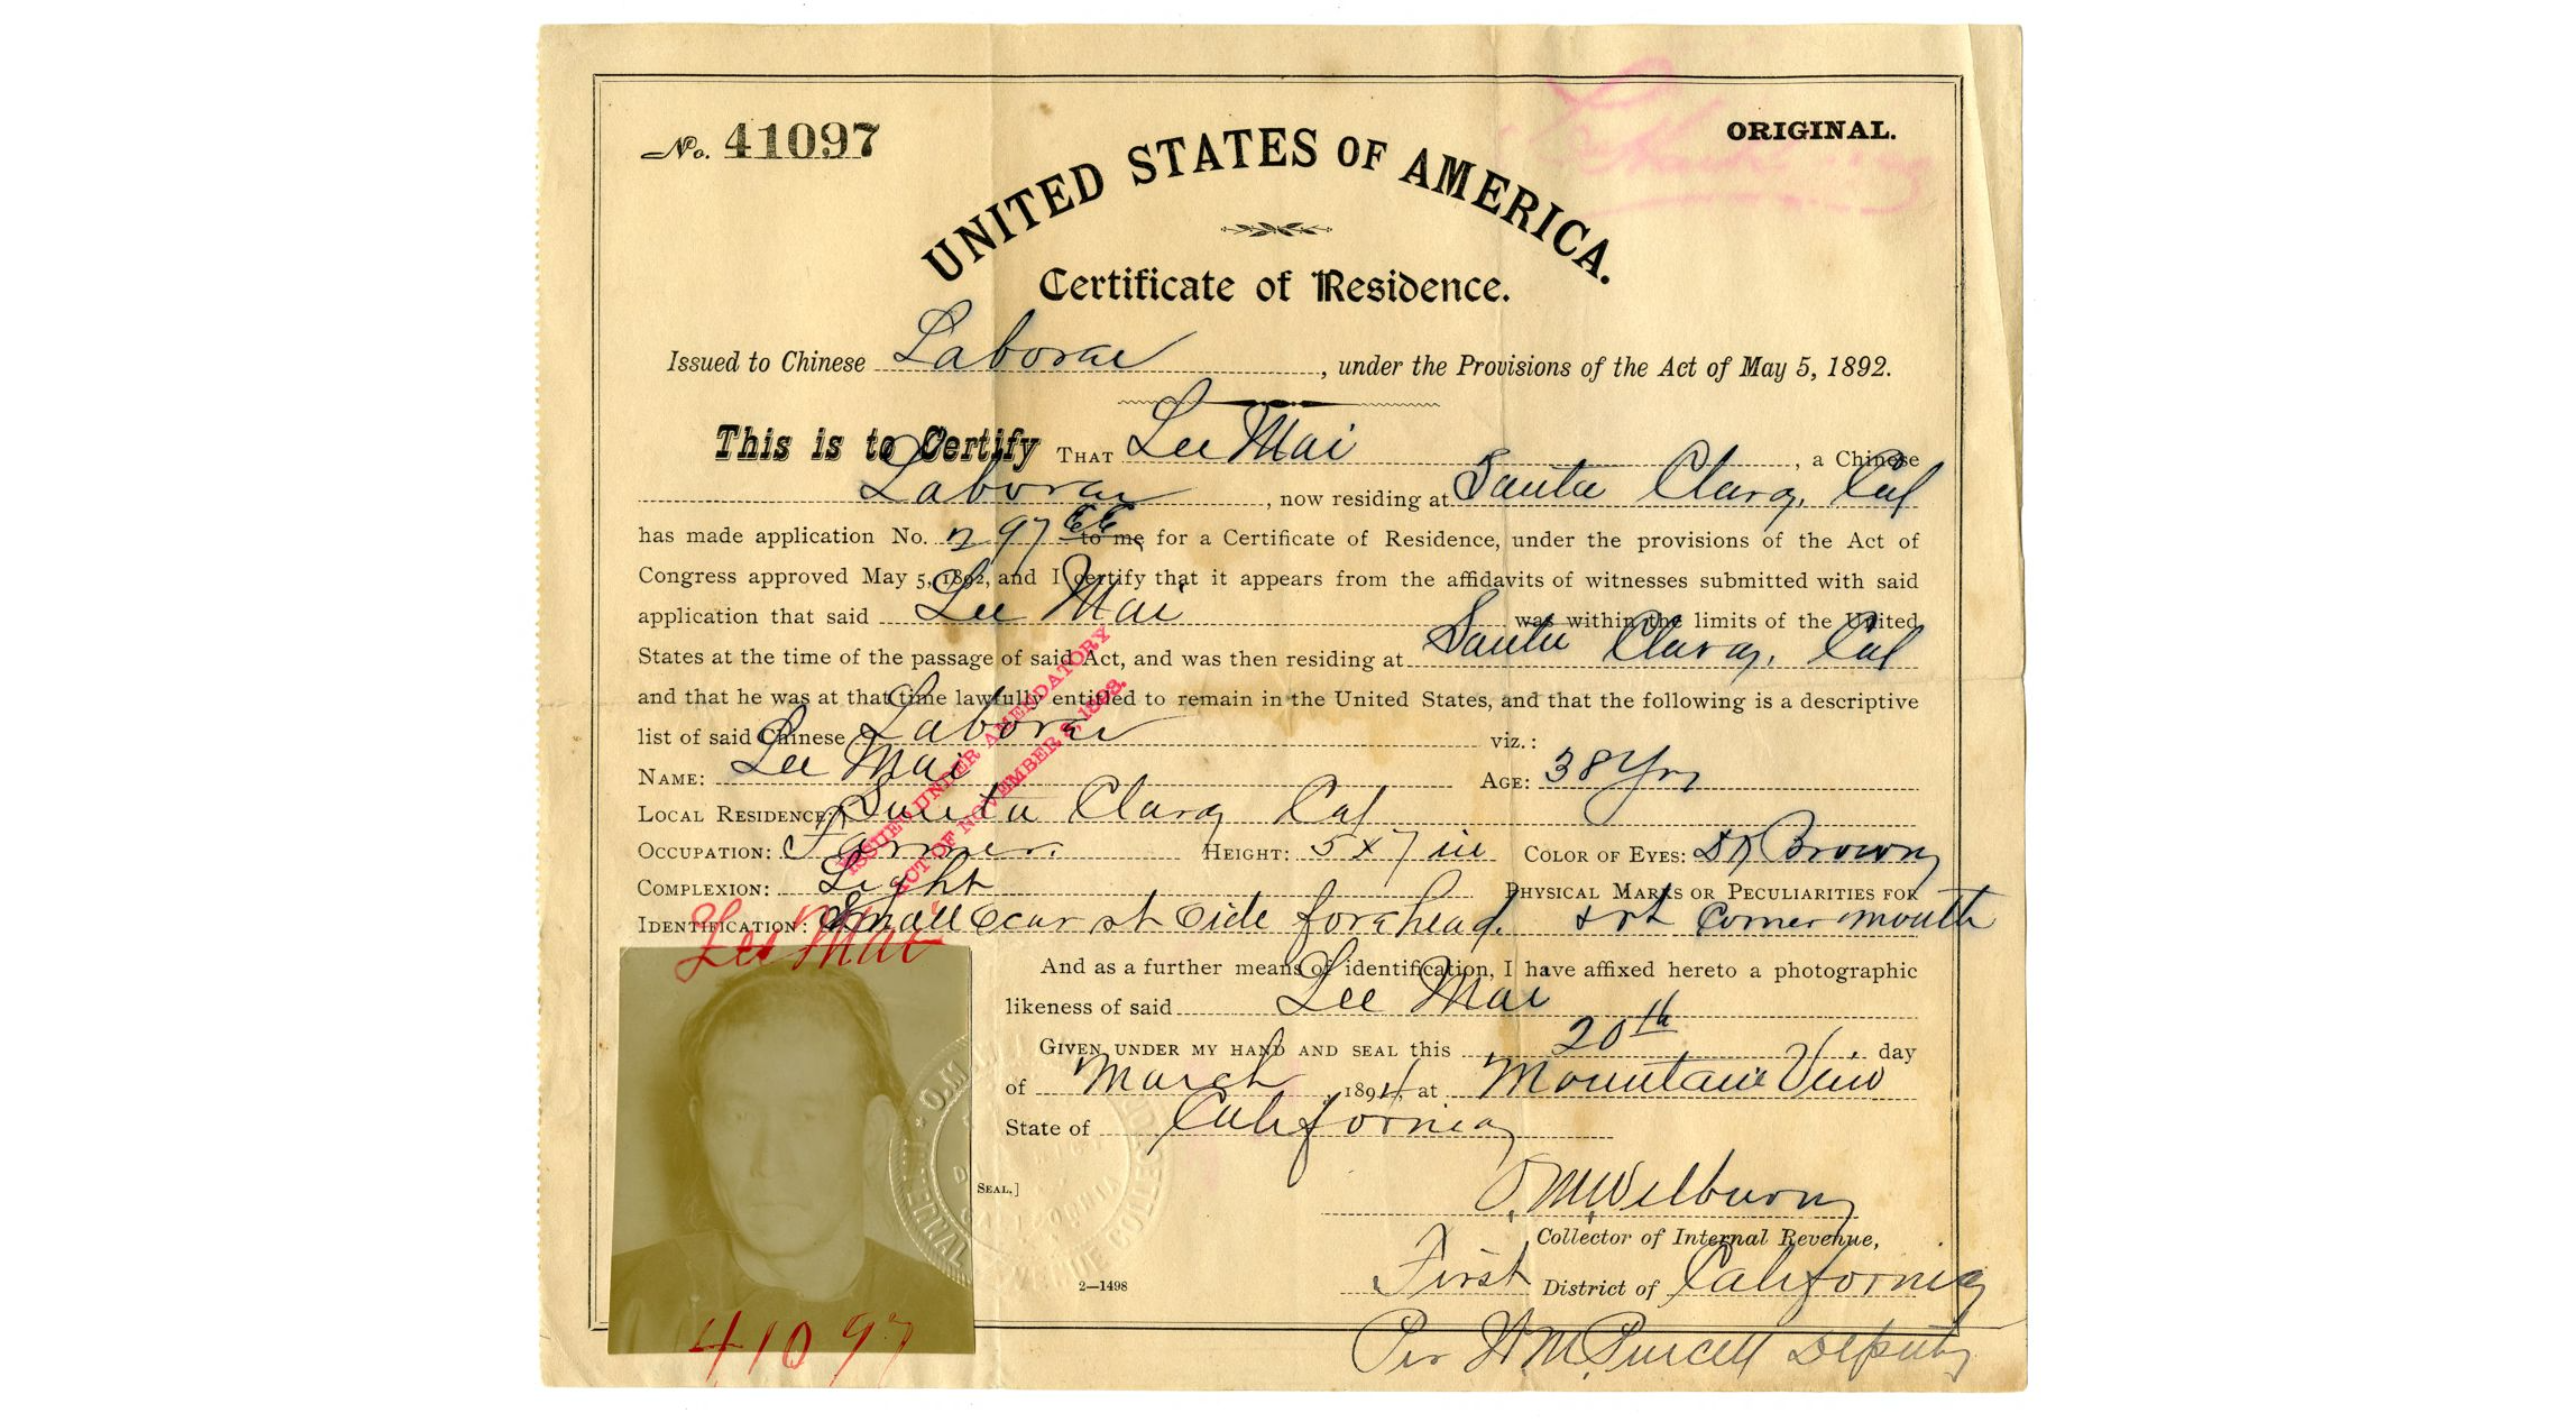 No. 41097
ORIGINAL.
UNITED STATES OF AMERICA.
Certificate of Residence.
Issued to Chinese Laborer, under the Provisions of the Act of May 5, 1892.
This is to Certify THAT Lee Mai, a Chinese
Laborer, now residing at Santa Clara, Cal
has made application No. 297 to me for a Certificate of Residence, under the provisions of the Act of
Congress approved May 5, 1892, and I certify that it appears from the affidavits of witnesses submitted with said
application that said Lee Mai was within the limits of the United
States at the time of the passage of said Act, and was then residing at Santa Clara, Cal
and that he was at that time lawfully entitled to remain in the United States, and that the following is a descriptive
list of said Chinese Laborer viz.:
NAME: Lee Mai AGE: 38 Yrs
LOCAL RESIDENCE: Santa Clara Cal
OCCUPATION: Farmer. HEIGHT: 5 x 7 in COLOR OF EYES: Dk Brown
COMPLEXION: Light PHYSICAL MARKS OR PECULIARITIES FOR
IDENTIFICATION: Small scar rt side forehead. & rt corner mouth
ISSUED UNDER AMENDATORY
ACT OF NOVEMBER 3, 1893.
Lee Mai
And as a further means of identification, I have affixed hereto a photographic
likeness of said Lee Mai
GIVEN UNDER MY HAND AND SEAL this 20th day
of March, 1894, at Mountain View
State of California
SEAL.]
O. M. Welburn
Collector of Internal Revenue,
First District of California
Per W. M. Purcell Deputy
2—1498
41097